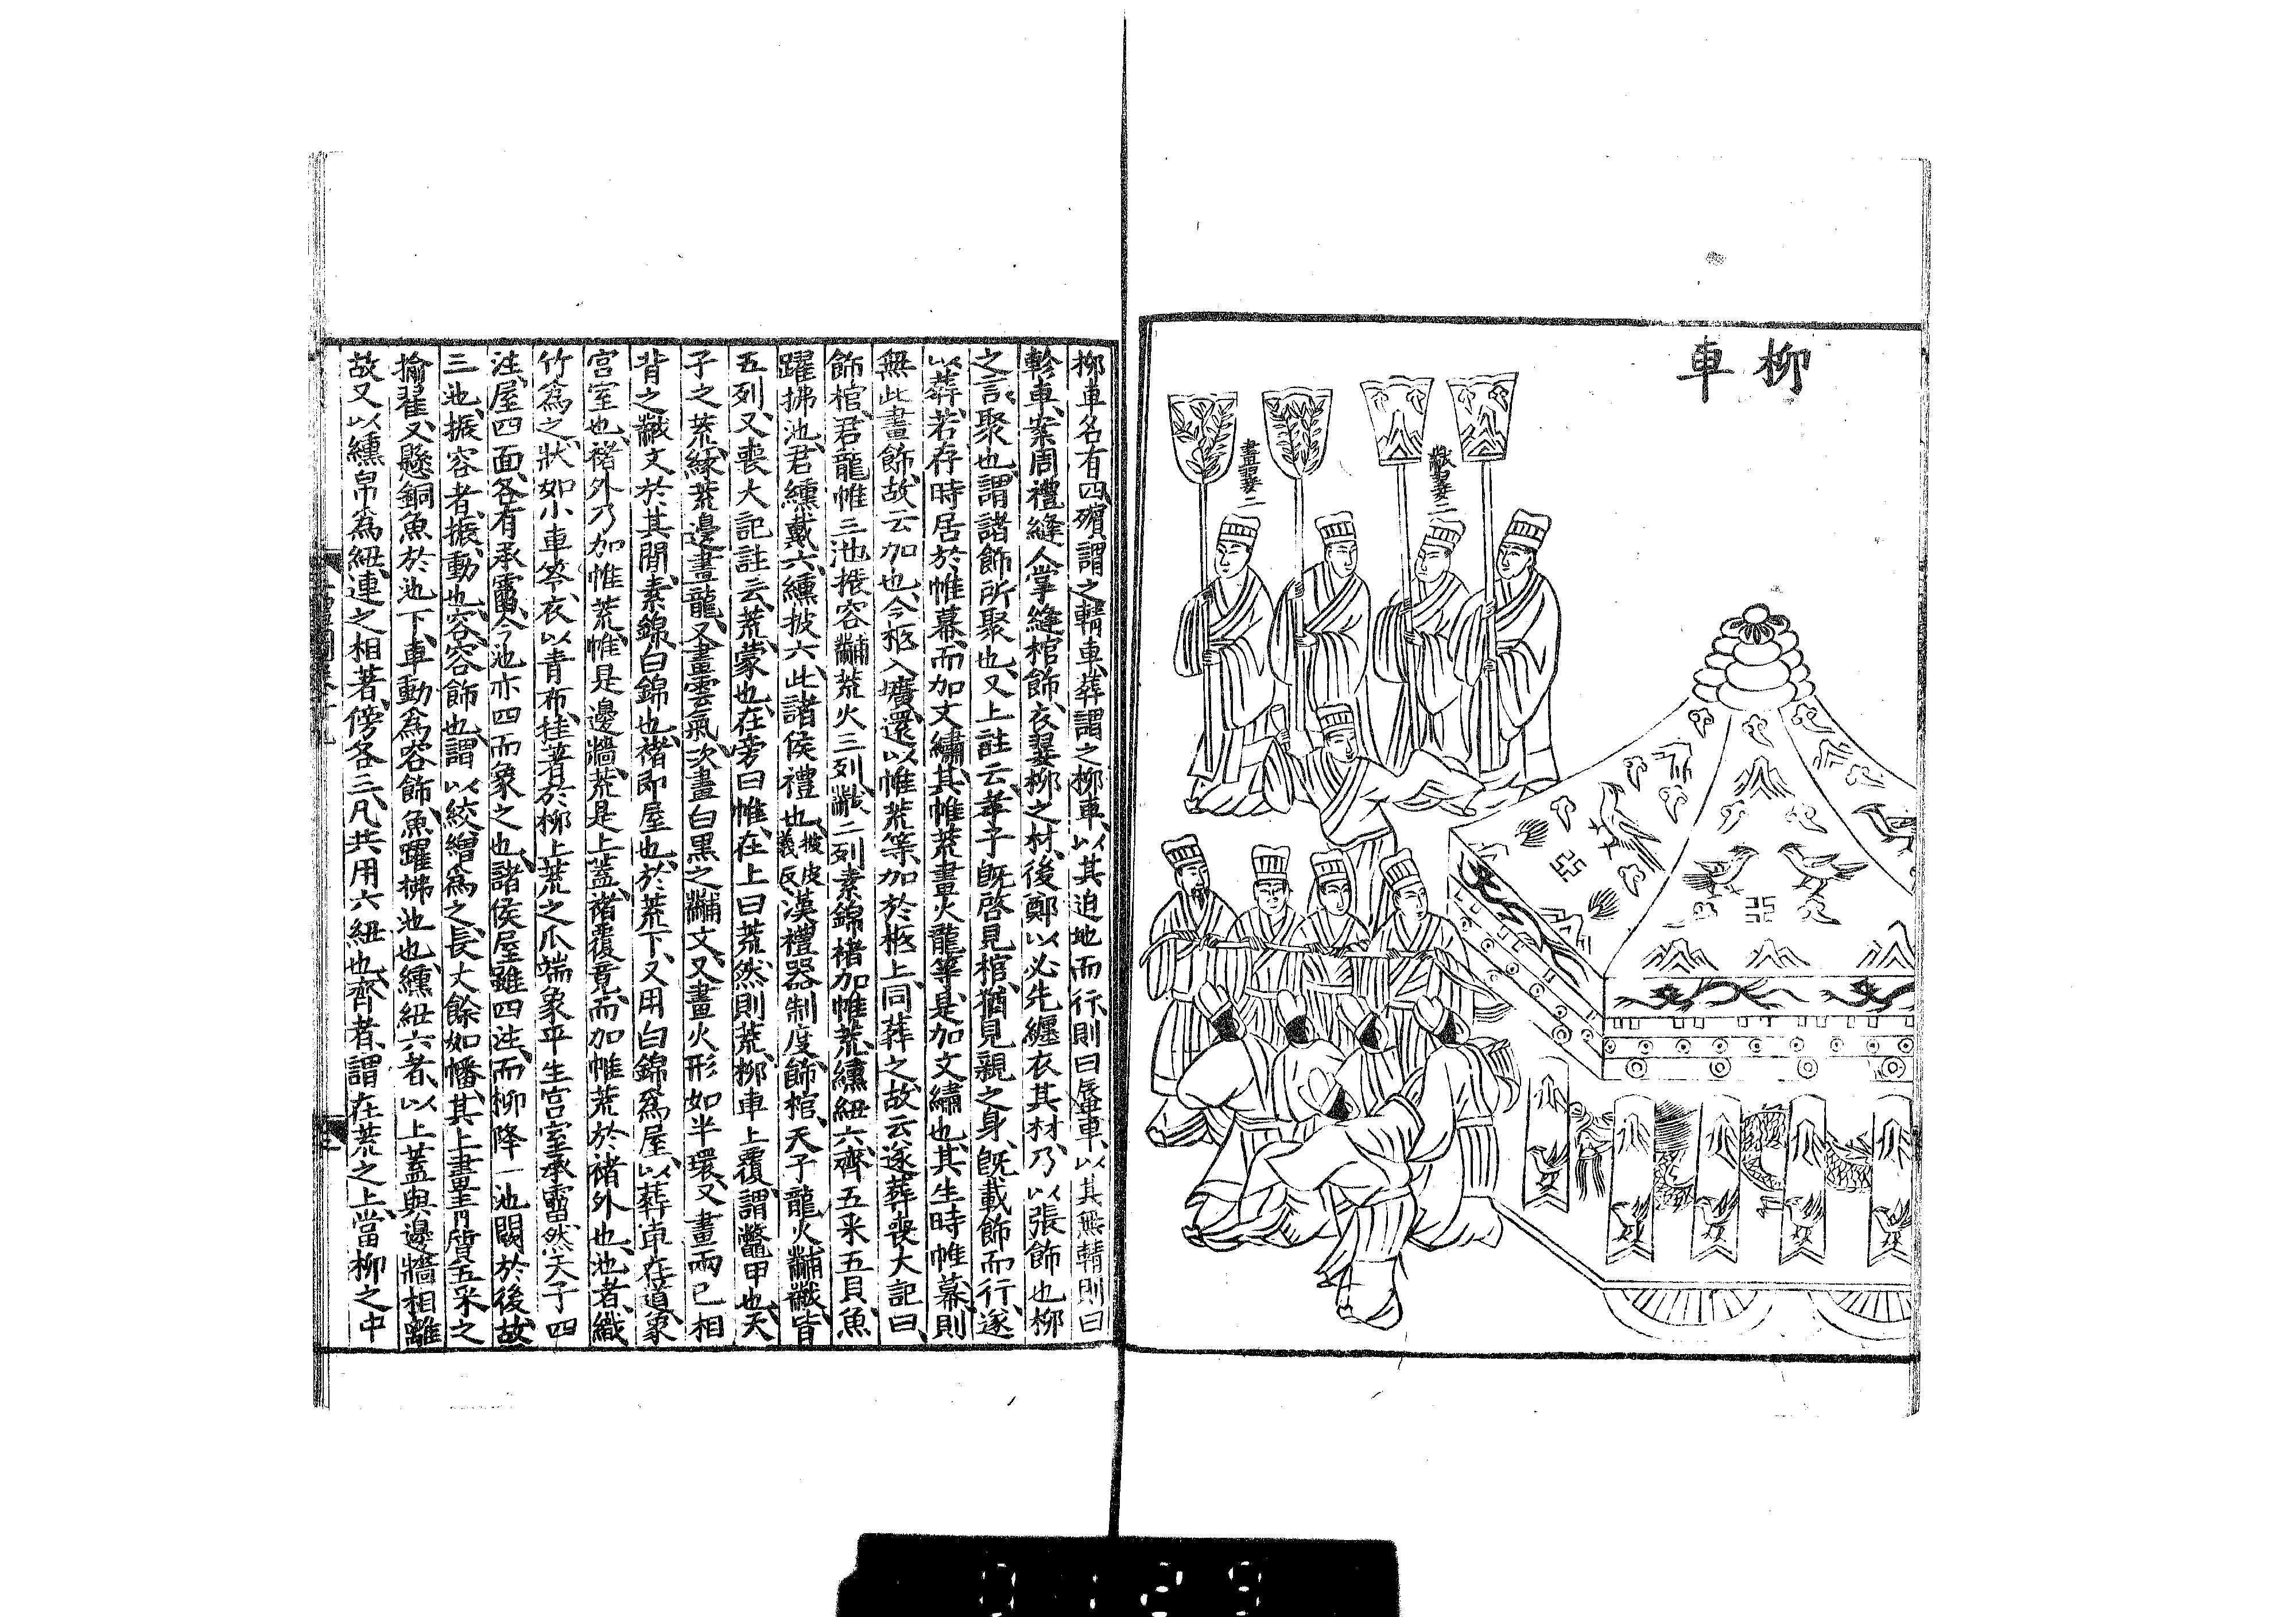 柳車
黻翣二
畫翣二
柳車名有四殯謂之輤車葬謂之柳車以其迫地而行則曰蜃車以其無輤則曰
軫車案周禮縫人掌縫棺飾衣翣柳之材後鄭以必先纏衣其材乃以張飾也柳
之言聚也謂諸飾所聚也又上註云孝子既啓見棺猶見親之身既載飾而行遂
以葬若存時居於帷幕而加文繡其帷荒畫火龍等是加文繡也其生時帷幕則
無此畫飾故云加也今柩入壙還以帷荒等加於柩上同葬之故云遂葬喪大記曰
飾棺君龍帷三池振容黼荒火三列黻二列素錦褚加帷荒纁紐六齊五采五貝魚
躍拂池君纁戴六纁披六此諸侯禮也披皮義反漢禮器制度飾棺天子龍火黼黻皆
五列又喪大記註云荒蒙也在旁曰帷在上曰荒然則荒柳車上覆謂鼈甲也天
子之荒緣荒邊畫龍又畫雲氣次畫白黑之黼文又畫火形如半環又畫兩己相
背之黻文於其間素錦白錦也褚即屋也於荒下又用白錦爲屋以葬車在道象
宮室也褚外乃加帷荒帷是邊牆荒是上蓋褚覆竟而加帷荒於褚外也池者織
竹爲之狀如小車笭衣以青布挂著於柳上荒之爪端象平生宮室承霤然天子四
注屋四面各有承霤今池亦四而象之也諸侯屋雖四注而柳降一池闕於後故
三池振容者振動也容容飾也謂以絞繒爲之長丈餘如幡其上畫青質五采之
揄翟又懸銅魚於池下車動爲容飾魚躍拂池也纁紐六者以上蓋與邊牆相離
故又以纁帛爲紐連之相著傍各三凡共用六紐也齊者謂在荒之上當柳之中
0129